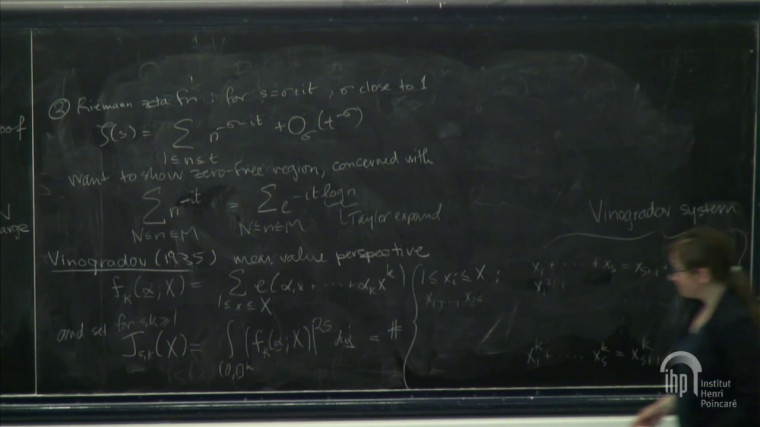 ② Riemann zeta fn : for s=σ+it, σ close to 1
ζ(s) = Σ n^{-σ-it} + O_σ(t^{-σ})
1≤n≤t
want to show zero-free region, concerned with
Σ n^{-it} = Σ e^{-it log n}
N≤n≤M N≤n≤M Taylor expand
Vinogradov (1935) mean value perspective
f_k(α;X) = Σ e(α₁x+⋯+α_k x^k)
1≤x≤X
and set for s,k≥1
J_{s,k}(X) = ∫ |f_k(α;X)|^{2s} dα = #
(0,1)^k
1≤x_i≤X :
Vinogradov system
x₁ + ⋯ + x_s = x_{s+1}
x₁^k + ⋯ x_s^k = x_{s+1}^k
oof
arge
ihp
Institut
Henri
Poincaré